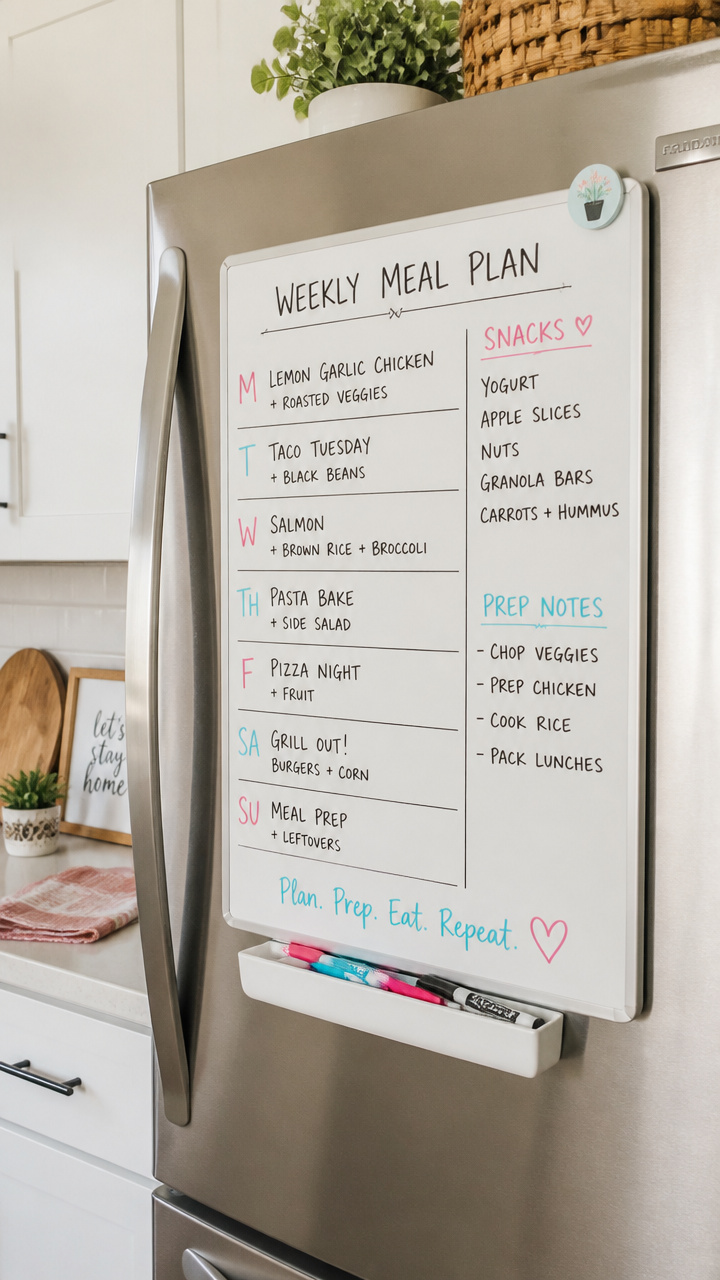 WEEKLY MEAL PLAN
M
LEMON GARLIC CHICKEN
+ ROASTED VEGGIES
T
TACO TUESDAY
+ BLACK BEANS
W
SALMON
+ BROWN RICE + BROCCOLI
TH
PASTA BAKE
+ SIDE SALAD
F
PIZZA NIGHT
+ FRUIT
SA
GRILL OUT!
BURGERS + CORN
SU
MEAL PREP
+ LEFTOVERS
SNACKS ♡
YOGURT
APPLE SLICES
NUTS
GRANOLA BARS
CARROTS + HUMMUS
PREP NOTES
- CHOP VEGGIES
- PREP CHICKEN
- COOK RICE
- PACK LUNCHES
Plan. Prep. Eat. Repeat. ♡
let's
stay
home